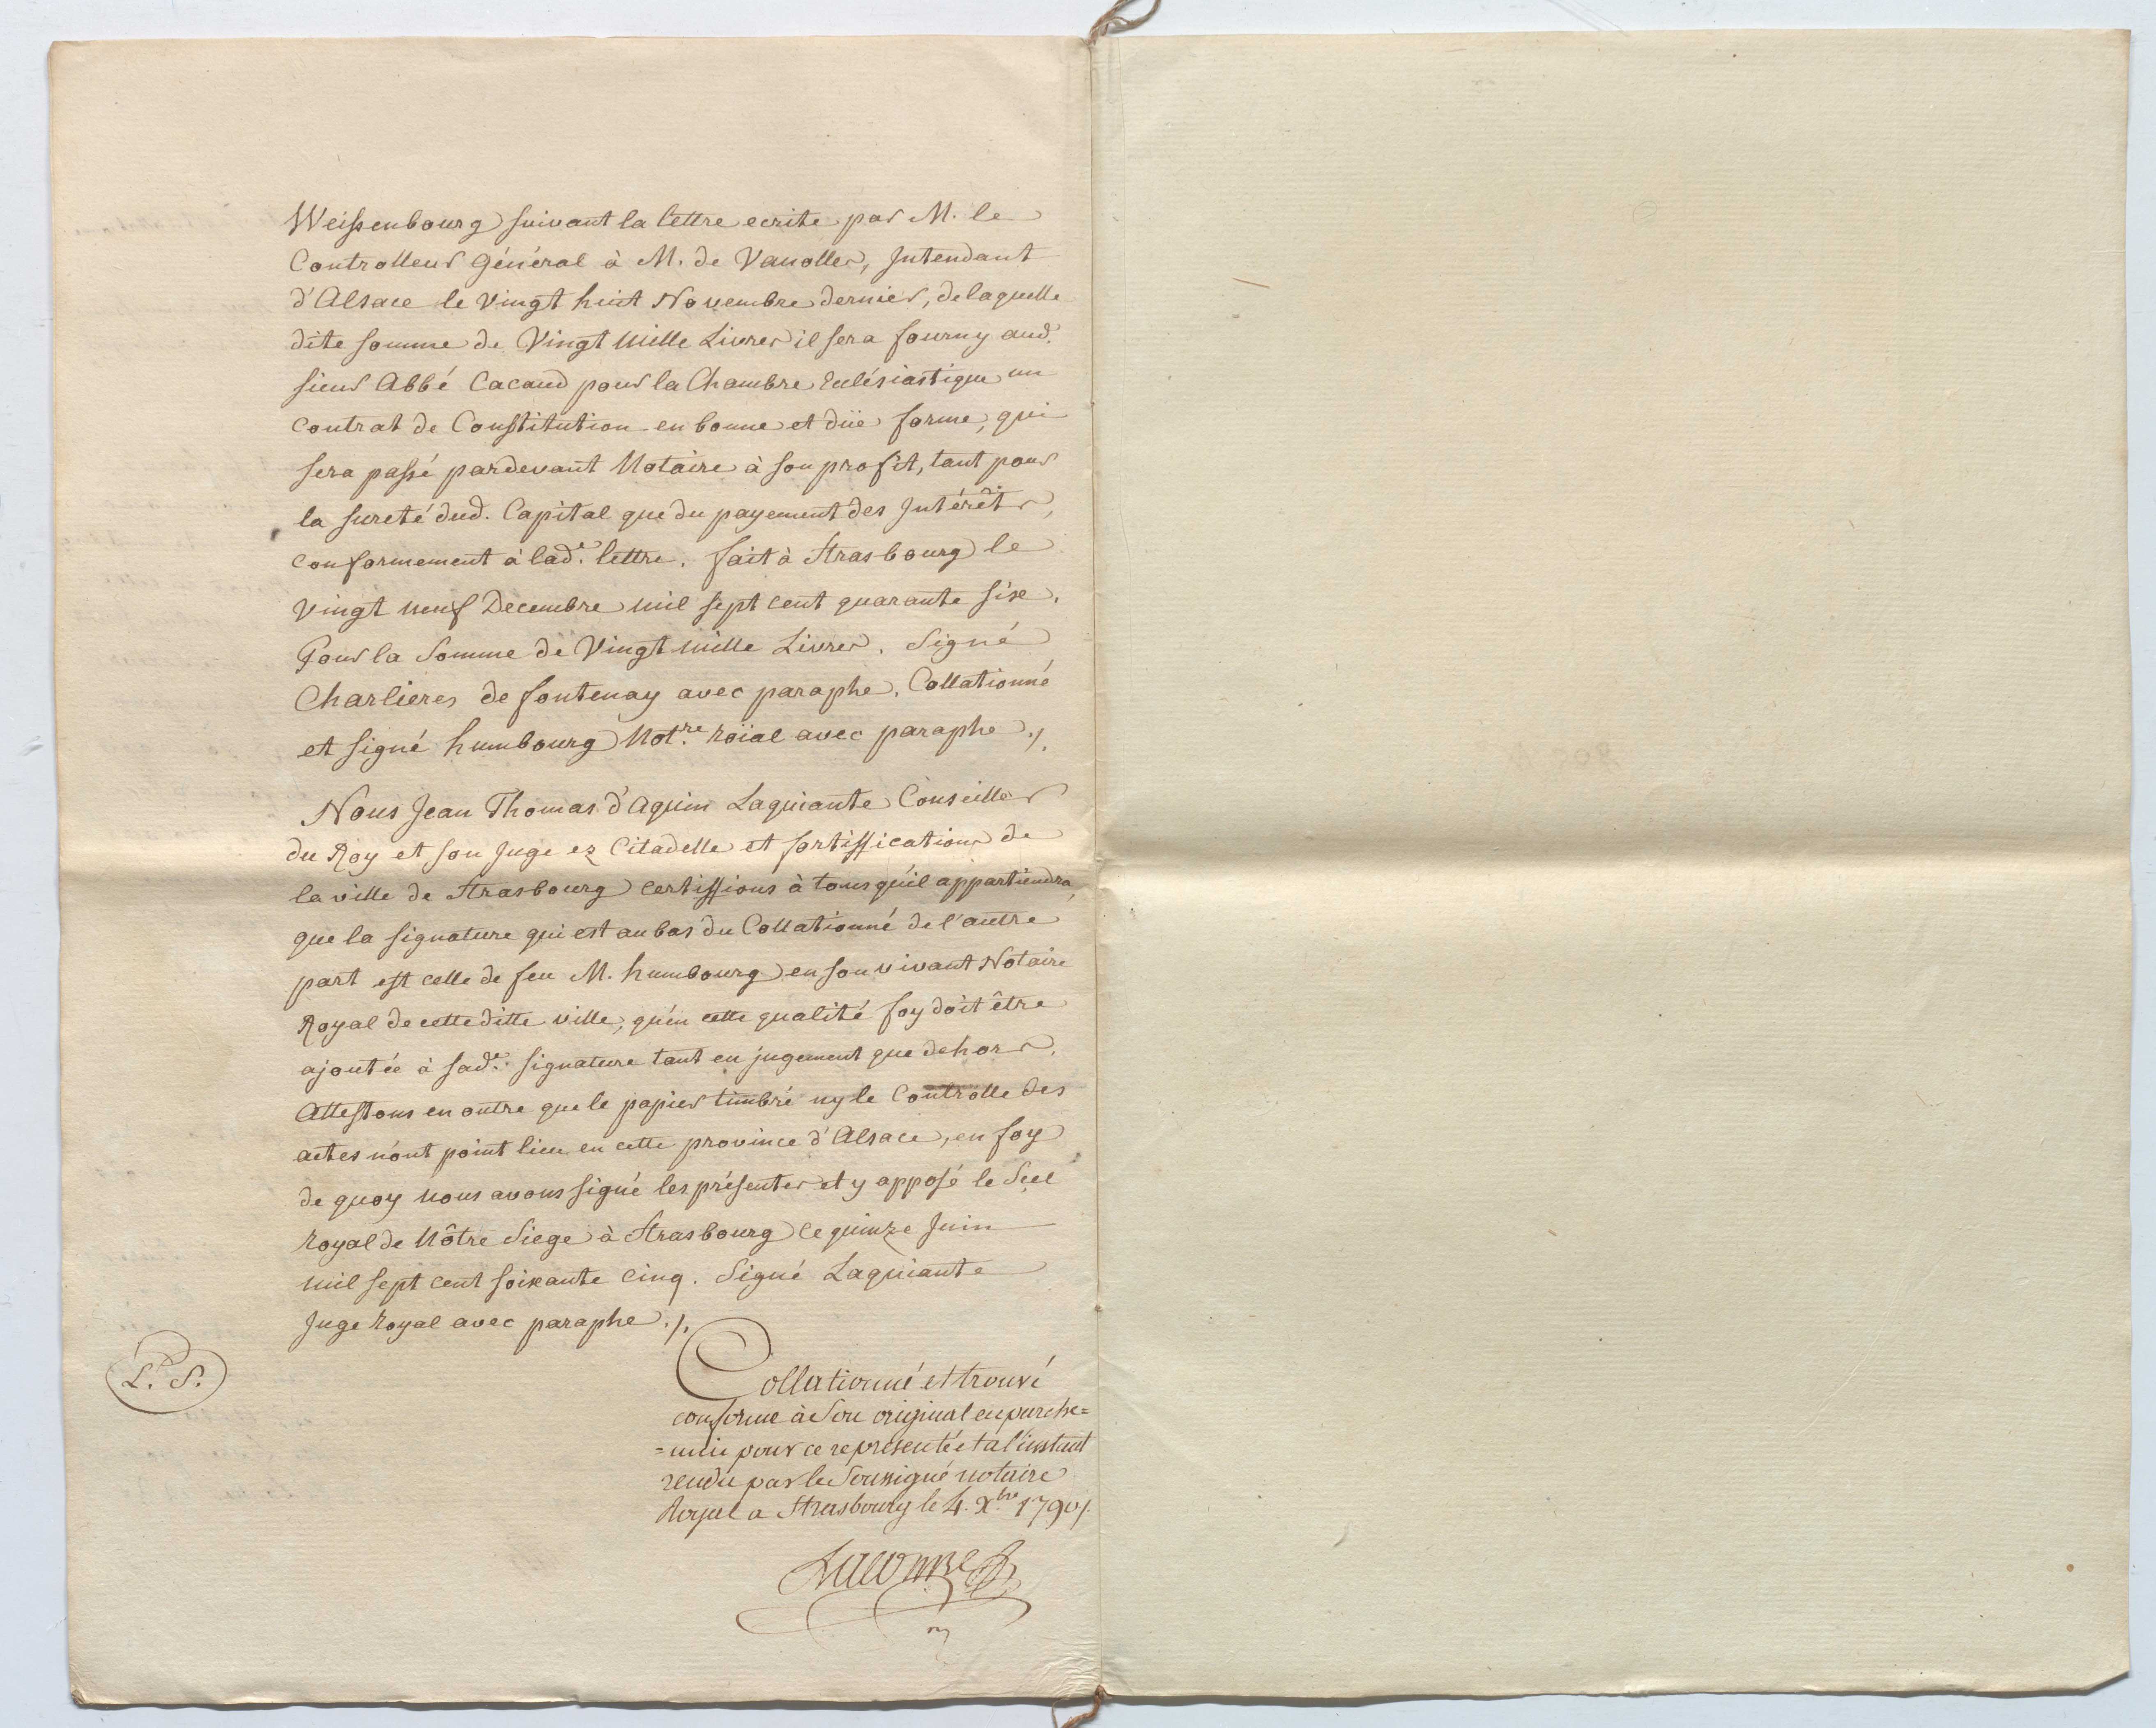 Weissenbourg suivant la lettre ecrite par M. le
Controlleur Général à M. de Vanolles, Intendant
d'Alsace le Vingt huit Novembre dernier, de laquelle
dite somme de Vingt Mille Livres il sera fourny aud.
sieur Abbé Cacaud pour la Chambre Eclésiastique un
Contrat de Constitution en bonne et düe forme, qui
sera passé pardevant Notaire à son profit, tant pour
la sureté dud. Capital que du payement des Intérêts,
conformement à lad.e lettre. fait à Strasbourg le
vingt neuf Decembre mil sept cent quarante six.
Pour la Somme de Vingt mille Livres. Signé
Charlieres de fontenay avec paraphe. Collationné
et signé humbourg Not.re roïal avec paraphe ./.
Nous Jean Thomas d'Aquin Laquiante Conseiller
du Roy et son Juge ez Citadelle et fortiffications de
la ville de Strasbourg certiffions à tous qu'il appartiendra,
que la signature qui est au bas du Collationné de l'autre
part est celle de feu M. humbourg en son vivant Notaire
Royal de cette ditte ville, qu'en cette qualité foy doit être
ajoutée à sad.e signature tant en jugement que dehors.
Attestons en outre que le papier timbré ny le Controlle des
actes n'ont point lieu en cette province d'Alsace, en foy
de quoy nous avons signé les présentes et y apposé le Scel
royal de Nôtre Siege à Strasbourg le quinze Juin
mil sept cent soixante cinq. Signé Laquiante
Juge Royal avec paraphe ./.
L. S.
Collationné et trouvé
conforme à Son original en parche=
=min pour ce representé et à l'instant
rendu par le Soussigné notaire
Royal a Strasbourg le 4. X.bre 1790 ./.
Lacombe